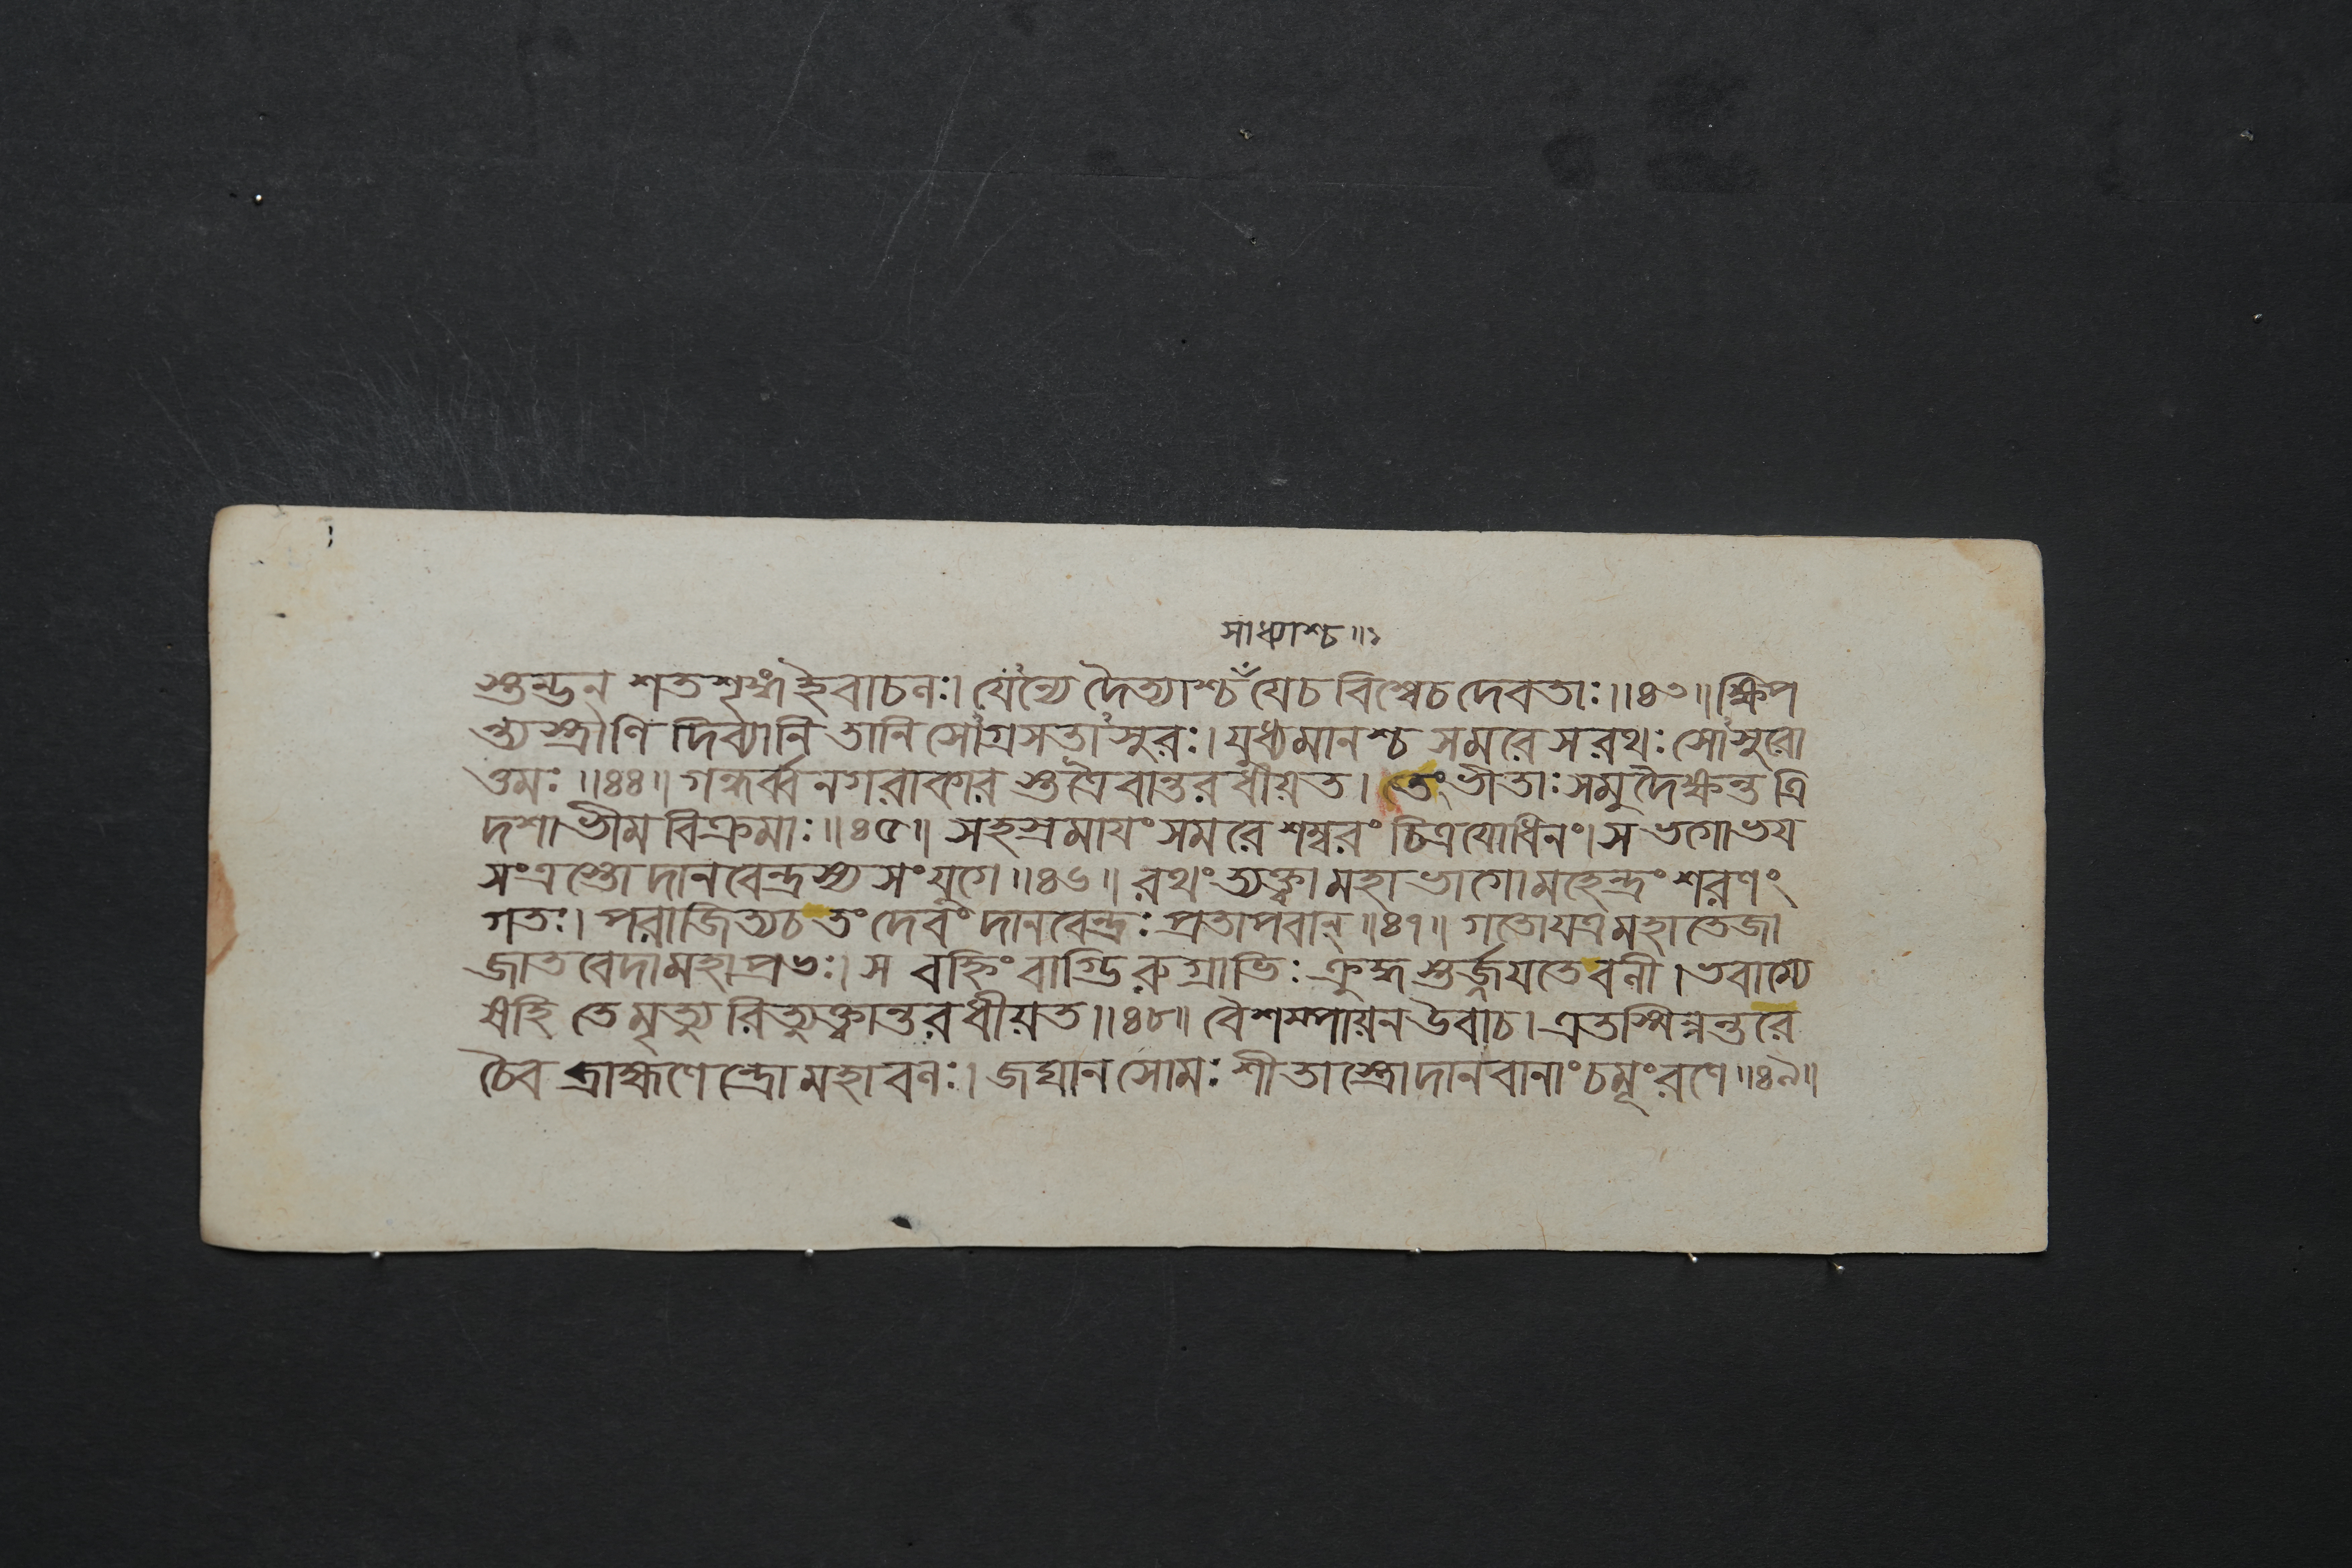 সাধ্যাশ্চ॥১
শুন্ডন শতশৃঙ্গং হৈবাচনঃ। যেঽন্যে দৈত্যাশ্চ যেচ বিশ্বেচ দেবতাঃ॥৪৩॥ ক্ষিপ
ন্ত্যস্ত্রাণি দিব্যানি তানি সোঽগ্রসত্তাঽসুরঃ। যুধ্যমানশ্চ সমরে স রথঃ সোঽসুরো
ত্তমঃ॥৪৪॥ গন্ধর্ব্বনগরাকার স্তত্রৈবান্তরধীয়ত। তেং ভীতাঃ সমুদৈক্ষন্ত ত্রি
দশা ভীমবিক্রমাঃ॥৪৫॥ সহস্রমাযং সমরে শম্বরং চিত্রযোধিনং। স ভগো ভয
সংত্রস্তো দানবেন্দ্রস্য সংযুগে॥৪৬॥ রথং ত্যক্ত্বা মহাভাগো মহেন্দ্রং শরণং
গতঃ। পরাজিত্যচ তং দেবং দানবেন্দ্রঃ প্রতাপবান্॥৪৭॥ গতো যত্র মহাতেজা
জাতবেদা মহাপ্রভঃ। স বহ্নিং বাগ্ভিরুগ্রাভিঃ ক্রুদ্ধস্তর্জ্জযতে বলী। ভবাম্যে
ষহি তে মৃত্যুরিত্যুক্ত্বান্তরধীয়ত॥৪৮॥ বৈশম্পায়ন উবাচ। এতস্মিন্নন্তরে
চৈব ব্রাহ্মণেন্দ্রো মহাবলঃ। জঘান সোমঃ শীতাস্ত্রো দানবানাং চমূং রণে॥৪৯॥